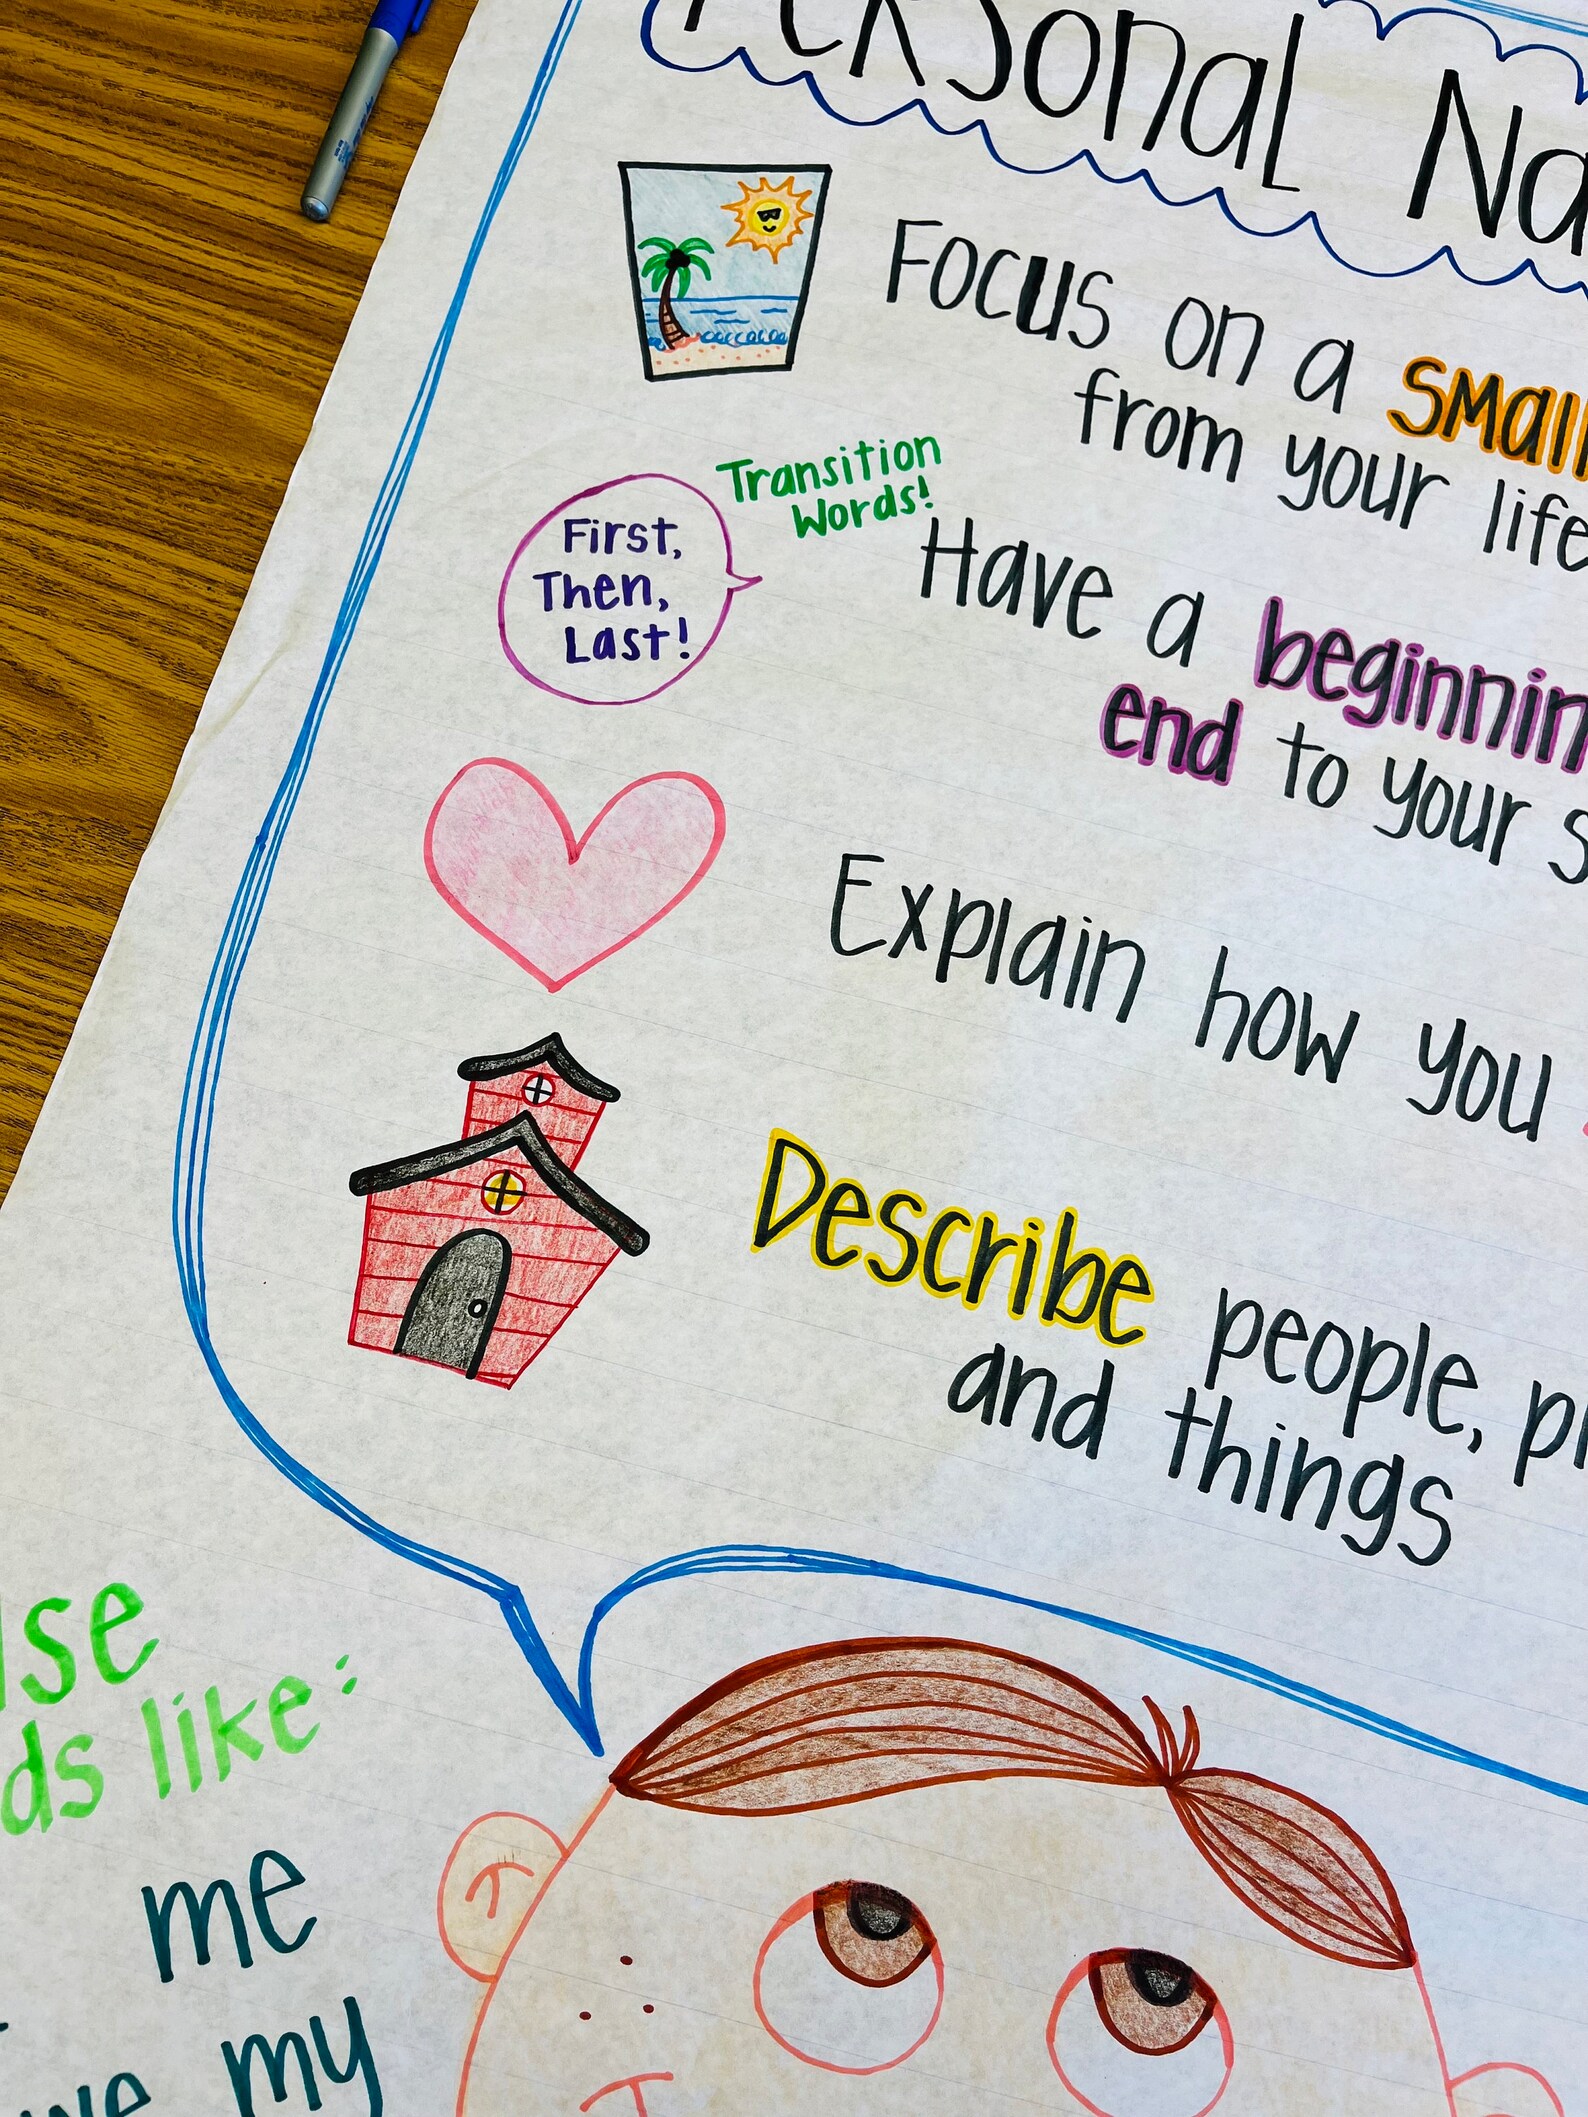 Personal Na
Focus on a small
from your life
Transition
Words!
First,
Then,
Last!
Have a beginnin
end to your s
Explain how you
Describe people, pl
and things
use
ds like:
me
we my